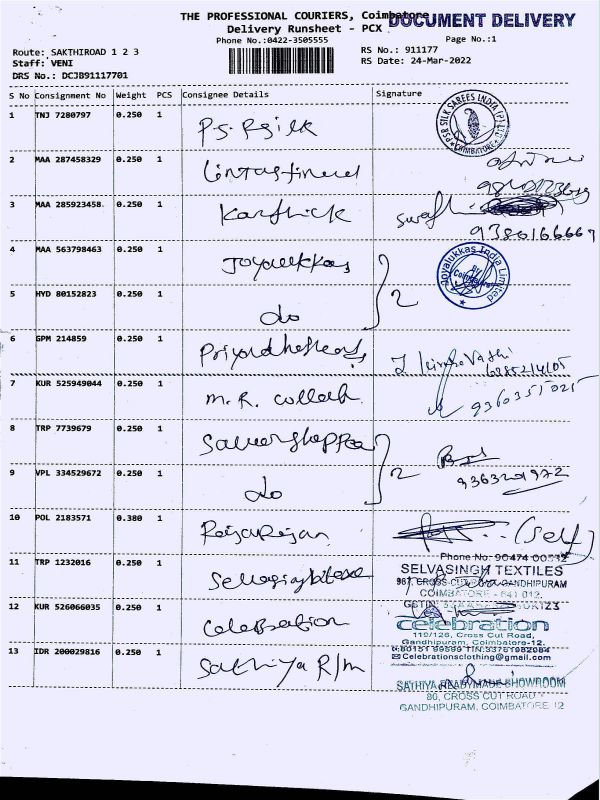 THE PROFESSIONAL COURIERS, Coimbatore
DOCUMENT DELIVERY
Delivery Runsheet - PCX
Phone No.:0422-3505555
Page No.:1
Route: SAKTHIROAD 1 2 3
RS No.: 911177
Staff: VENI
RS Date: 24-Mar-2022
DRS No.: DCJB91117701
S No Consignment No Weight PCS Consignee Details Signature
1 TNJ 7280797 0.250 1
PSR SILK SAREES INDIA (P) LTD COIMBATORE
2 MAA 287458329 0.250 1
3 MAA 285923458 0.250 1 Karthick
9380166669
4 MAA 563798463 0.250 1 Joyalukkas 2
Joyalukkas India Limited Coimbatore
5 HYD 80152823 0.250 1 do
6 GPM 214859 0.250 1
7 KUR 525949044 0.250 1 M.R. collech 9360355025
8 TRP 7739679 0.250 1 2
9 VPL 334529672 0.250 1 do 9363201972
10 POL 2183571 0.380 1 Rajarajan (self)
Phone No: 90474 00512
11 TRP 1232016 0.250 1
SELVASINGH TEXTILES
987, CROSS CUT ROAD GANDHIPURAM
COIMBATORE - 641 012.
12 KUR 526066035 0.250 1 Celebration
celebration
110/126, Cross Cut Road,
Gandhipuram, Coimbatore-12.
Celebrationsclothing@gmail.com
13 IDR 200029816 0.250 1 Sathiya R/m
SATHIYA READYMADE SHOWROOM
86, CROSS CUT ROAD
GANDHIPURAM, COIMBATORE 12